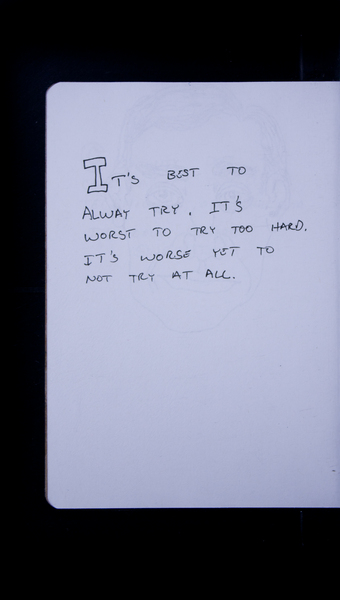 IT'S BEST TO
ALWAY TRY. IT'S
WORST TO TRY TOO HARD.
IT'S WORSE YET TO
NOT TRY AT ALL.